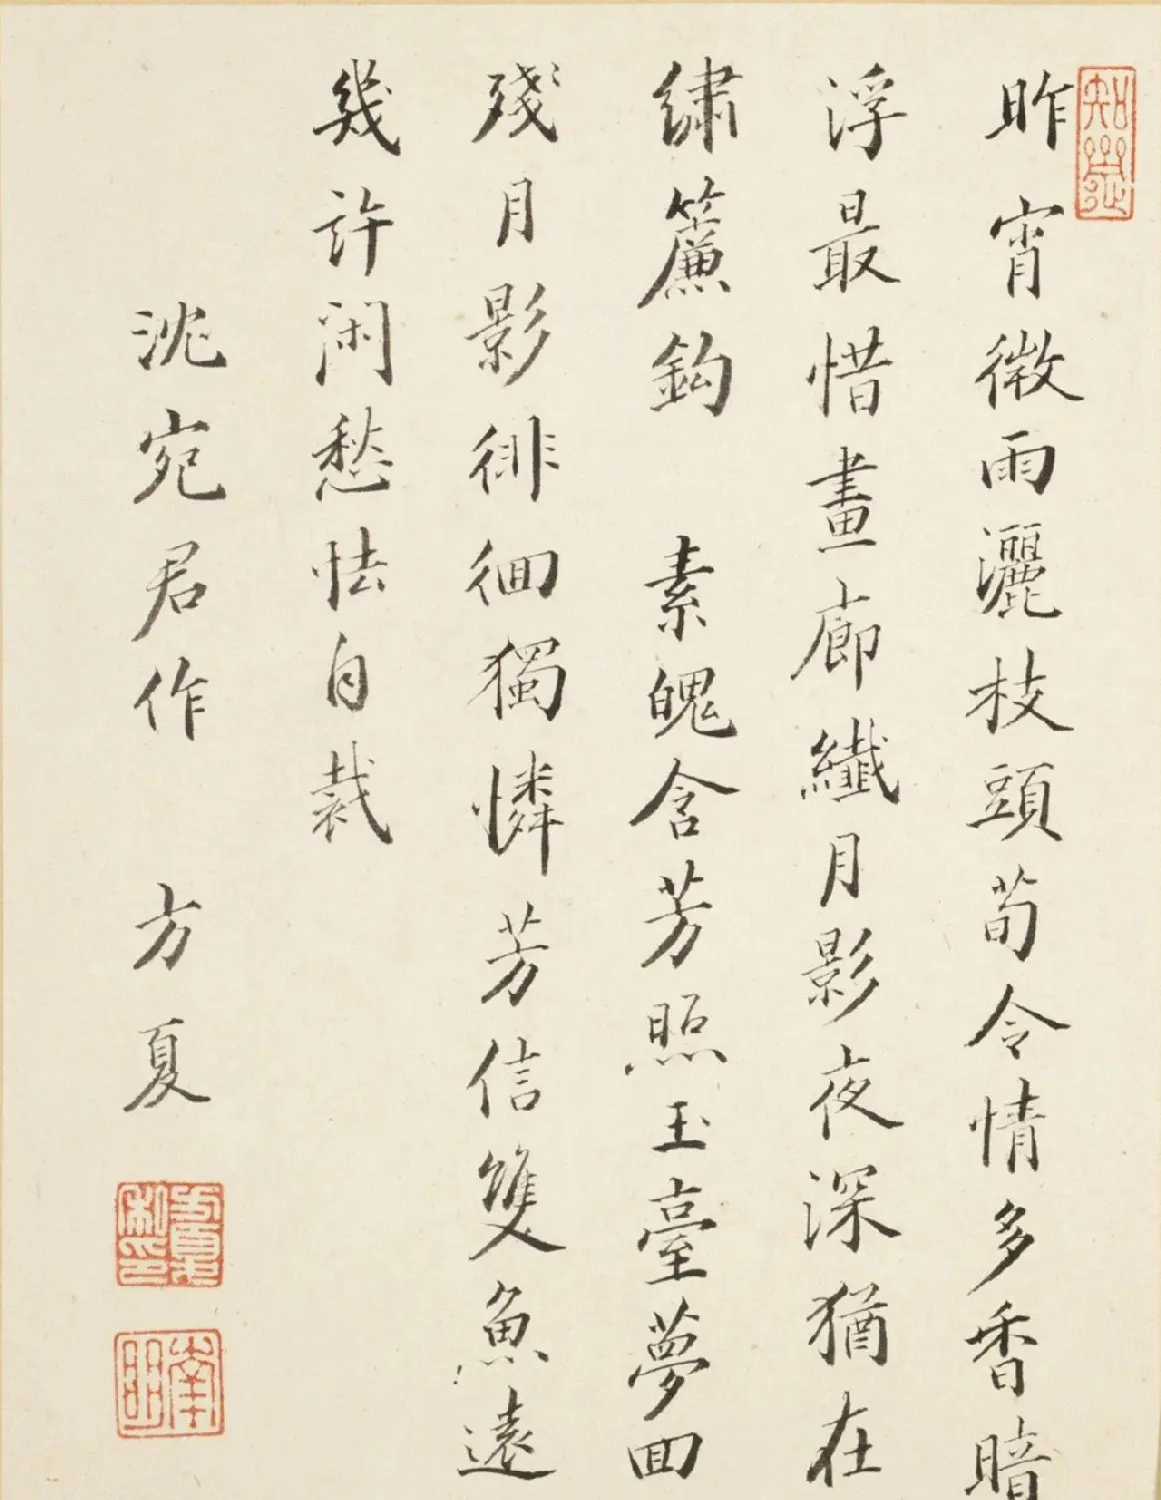 昨宵微雨灑枝頭荀令情多香暗
浮最惜畫廊纖月影夜深猶在
繡簾鈎 素魄含芳照玉臺夢回
殘月影徘徊獨憐芳信雙魚遠
幾許閑愁怯自裁
沈宛君作 方夏
方夏私印
南明